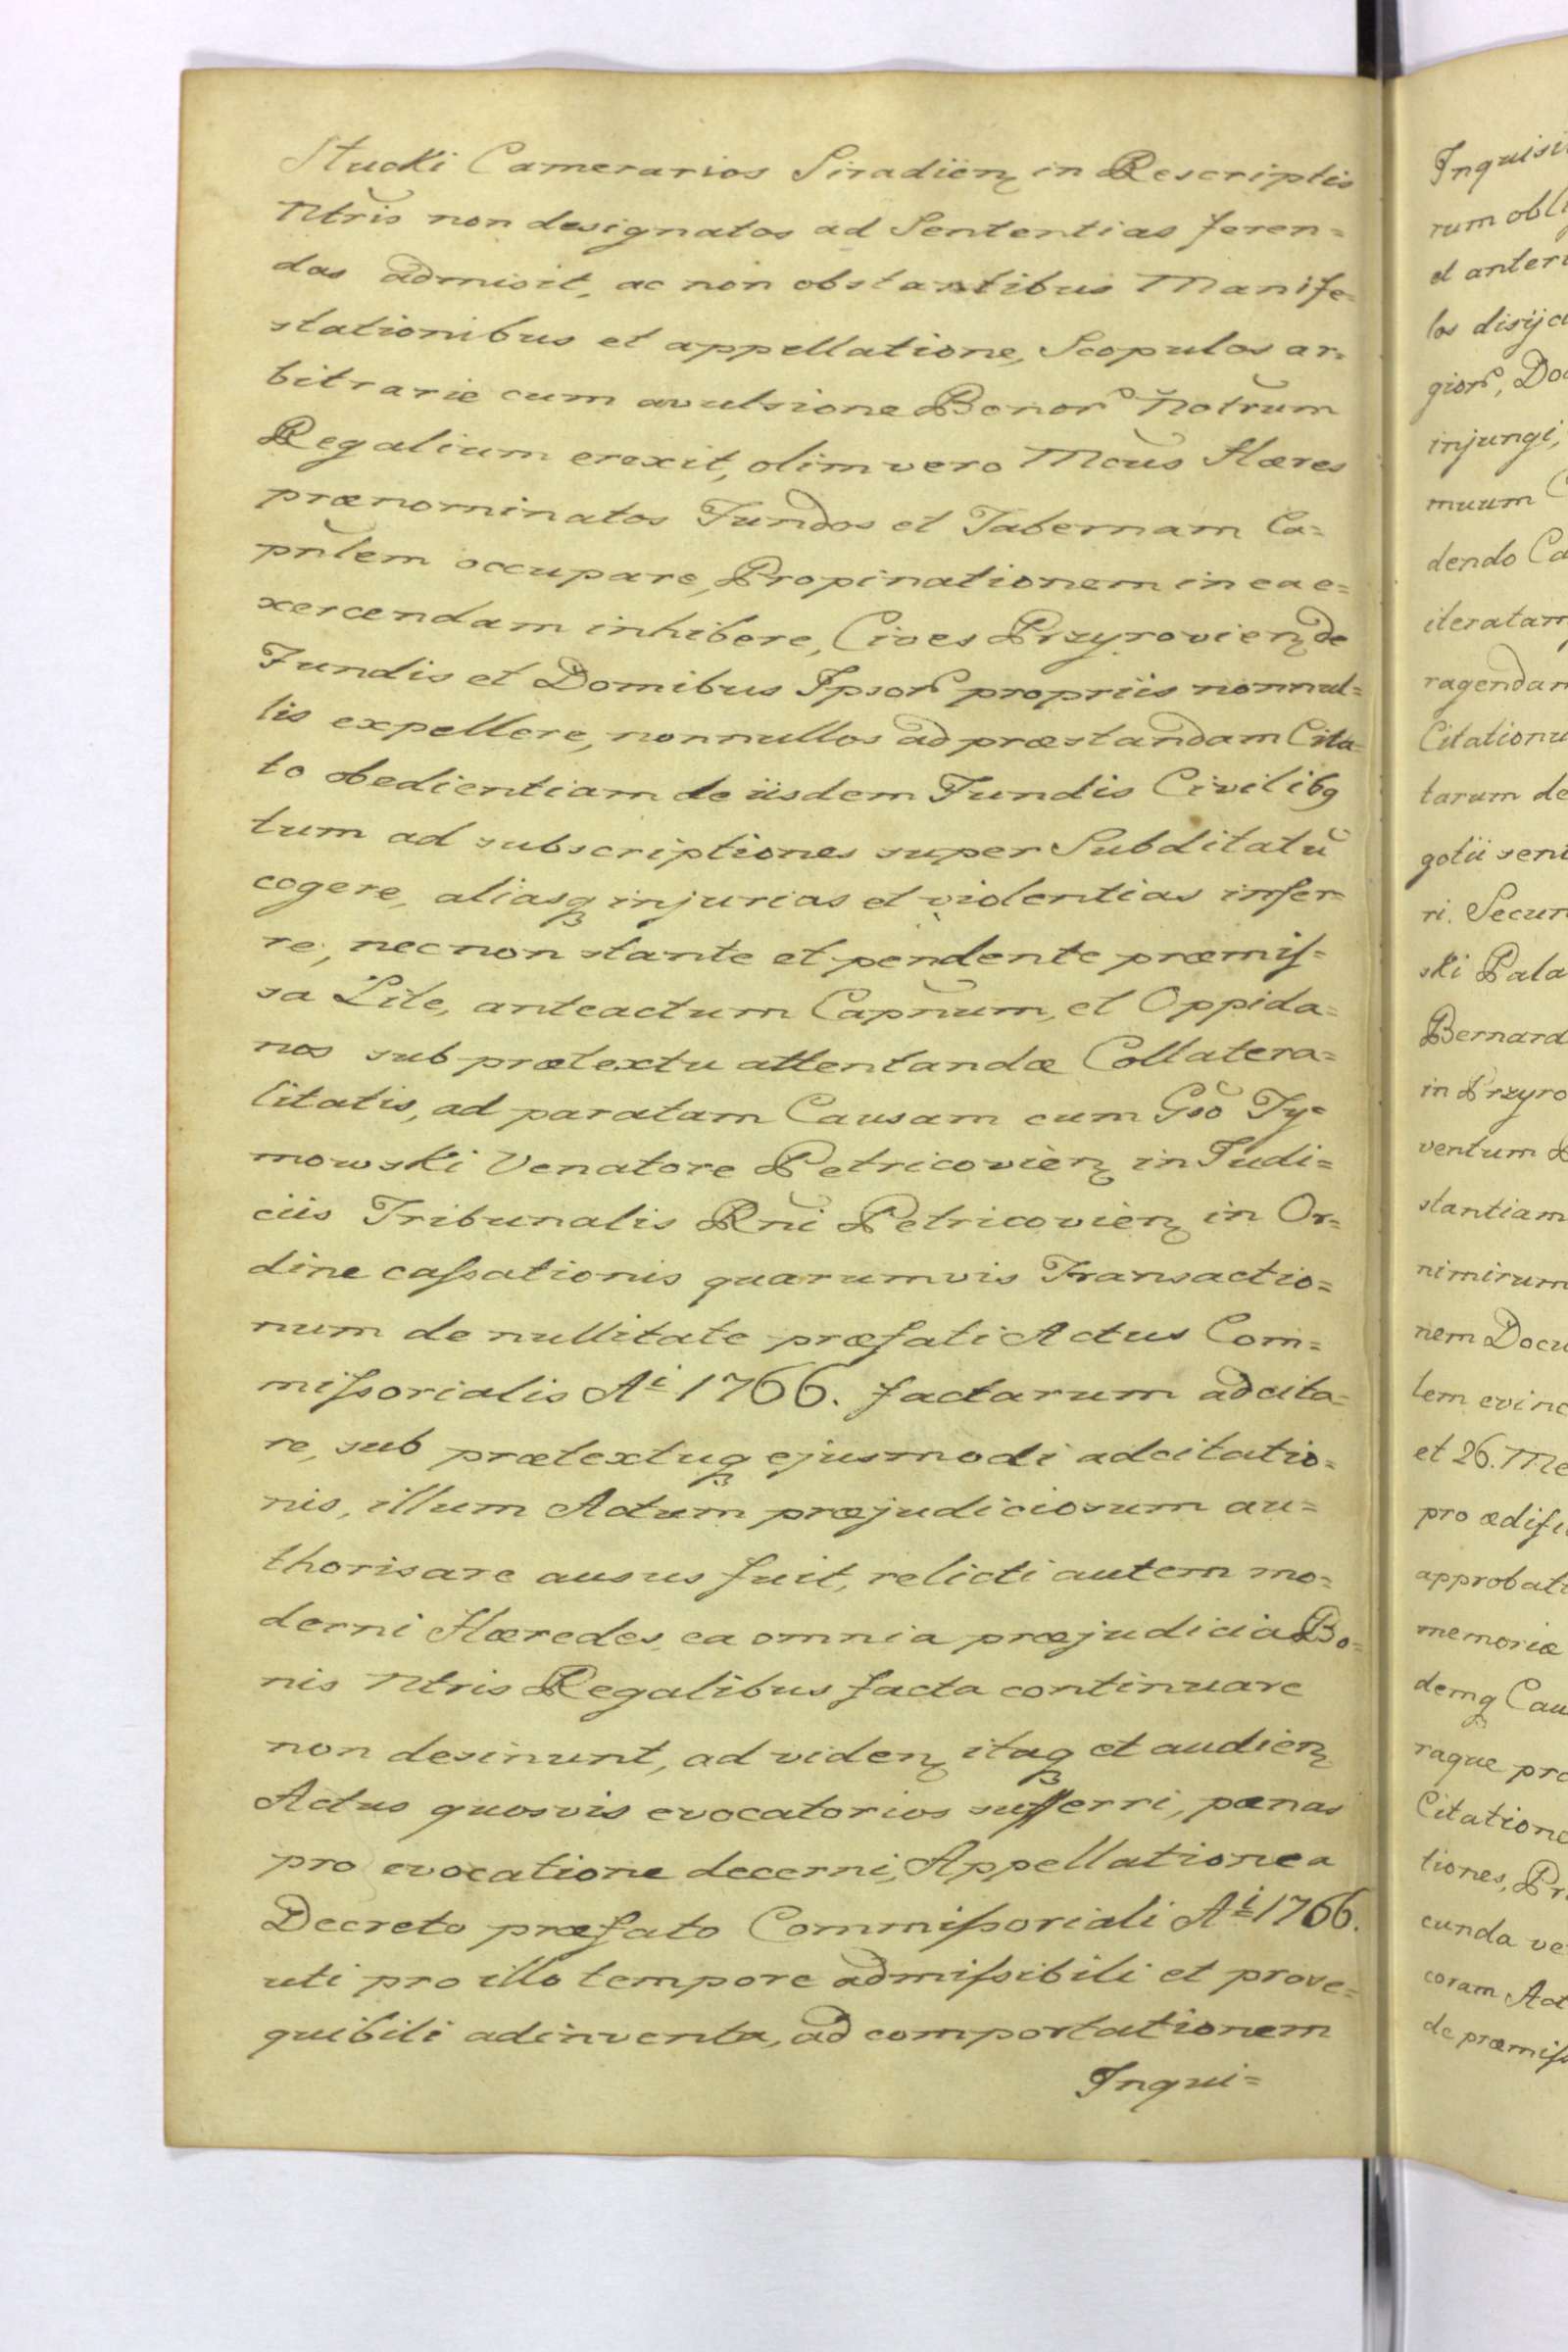 Stucki Camerarios Siradien̄ in Rescriptis
Ntris non designatos ad Sententias feren=
das admisit, ac non obstantibus Manife=
stationibus et appellatione, Scopulos ar=
bitrarie cum avulsione Bonor̃ Notrum
Regalium erexit, olim vero Mcus Hæres
prænominatos Fundos et Tabernam Ca=
pñlem occupare, Propinationem in ea e=
xercendam inhibere, Cives Przyrovien̄ de
Fundis et Domibus Ipsor̃ propriis nonnul=
lis expellere, nonnullos ad præstandam Cita=
to obedientiam de iisdem Fundis Civilibq
tum ad subscriptiones super Subditatũ
cogere, aliasq injurias et violentias infer=
re, necnon stante et pendente præmiſ=
sa Lite, anteactum Capñum, et Oppida=
nos sub prætextu attentandæ Collatera=
litatis, ad paratam Causam cum Gso Ty=
mowski Venatore Petricovien̄ in Judi=
ciis Tribunalis Rñi Petricovien̄ in Or=
dine caſsationis quarumvis Transactio=
num de nullitate præfati Actus Com=
miſsorialis Ai 1766. factarum adcita=
re, sub prætextuq ejusmodi adcitatio=
nis, illum Actum præjudiciosum au=
thorisare ausus fuit, relicti autem mo=
derni Hæredes ea omnia præjudicia Bo=
nis Ntris Regalibus facta continuare
non desinunt, ad viden̄ itaq et audien̄
Actus quosvis evocatorios sufferri, pœnas
pro evocatione decerni, Appellatione a
Decreto præfato Commiſsoriali Ai 1766.
uti pro illo tempore admiſsibili et prose=
quibili adinventa, ad comportationem
Inqui=
Inquisi
rum obli
et anteri
los disijci
gior̃, Do
injungi,
muum C
dendo Ca
iteratam
ragendam
Citationu
tarum de
gotii seri
ri. Secun
ski Pala
Bernard
in Przyro
ventum
stantiam
nimirum
nem Docu
lem evinc
et 26. Me
pro ædifi
approbati
memoriæ
demq Cau
raque pro
Citatione
tiones, Pr
cunda ve
coram Act
de præmiſ